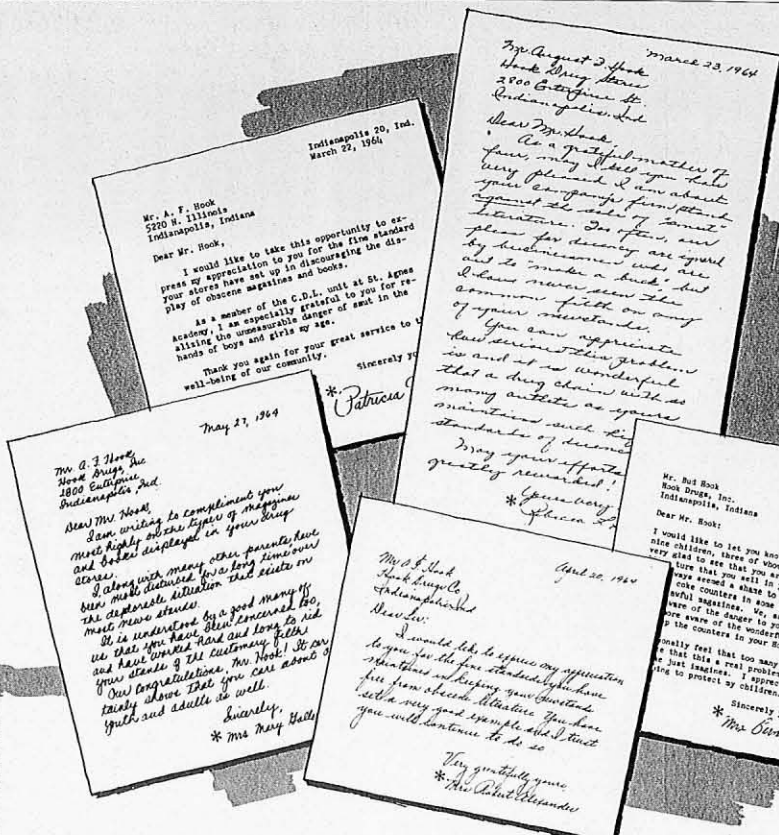 Indianapolis 20, Ind.
March 22, 1964
Mr. A. F. Hook
5220 N. Illinois
Indianapolis, Indiana
Dear Mr. Hook,
I would like to take this opportunity to ex-
press my appreciation to you for the fine standard
your stores have set up in discouraging the dis-
play of obscene magazines and books.
As a member of the C.D.L. unit at St. Agnes
Academy, I am especially grateful to you for re-
alizing the unmeasurable danger of smut in the
hands of boys and girls my age.
Thank you again for your great service to
well-being of our community.
Sincerely
* Patricia
March 23, 1964
Mr. August F. Hook
Hook Drug Stores
2800 Enterprise St.
Indianapolis, Ind
Dear Mr. Hook,
As a grateful mother of
four, may I tell you how
very pleased I am about
your company's firm stand
against the sale of "smut"
literature. Too often, our
pleas for decency are ignored
by businessmen who are
out to "make a buck", but
I have never seen the
common filth on any
of your newstands.
You can appreciate
how serious this problem
is and it is wonderful
that a drug chain with so
many outlets as yours
maintains such
standards of
May your efforts
greatly rewarded!
Yours very
*
May 27, 1964
Mr. A. F. Hook
Hook Drugs, Inc
2800 Enterprise
Indianapolis, Ind.
Dear Mr. Hook,
I am writing to compliment you
most highly on the types of magazines
and books displayed in your drug
stores.
I along with many other parents have
been most disturbed for a long time over
the deplorable situation that exists on
most news stands.
It is understood by a good many of
us that you have been concerned too,
and have worked hard and long to rid
your stands of the customary filth.
Our congratulations, Mr. Hook! It cer
tainly shows that you care about
youth and adults as well.
Sincerely,
* Mrs Mary
April 20, 1964
Mr A F Hook
Hook Drugs Co
Indianapolis Ind
Dear Sir:
I would like to express my appreciation
to you for the fine standards you have
maintained in keeping your newstands
free from obscene literature. You have
set a very good example and I trust
you will continue to do so
Very gratefully yours,
* Mrs Robert Alexander
Mr. Bud Hook
Hook Drugs, Inc.
Indianapolis, Indiana
Dear Mr. Hook:
I would like to let you
nine children, three of
very glad to see that you
ture that you sell in
ways seemed a shame to
coke counters in some
awful magazines. We,
ware of the danger to
more aware of the
up the counters in your
onally feel that too many
that this a real
just imagines. I
ing to protect my children.
Sincerely
* Mrs